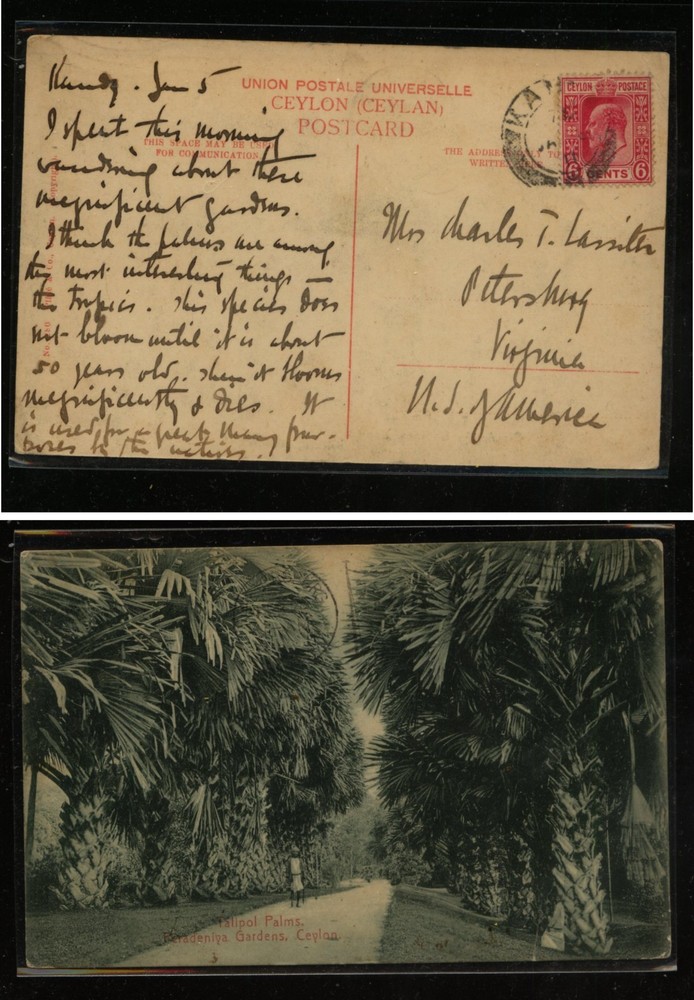 Kandy. Jan 5
UNION POSTALE UNIVERSELLE
CEYLON (CEYLAN)
POSTCARD
THIS SPACE MAY BE USED
FOR COMMUNICATION.
THE ADDRESS ONLY TO
WRITTEN
CEYLON POSTAGE
6 CENTS 6
KAN
I spent this morning
wandering about these
magnificent gardens.
I think the palms are among
the most interesting things in
the tropics. This species does
not bloom until it is about
50 years old. then it blooms
magnificently & dies. It
is used for a great many pur-
poses by the natives.
Mrs Charles T. Lassiter
Petersburg
Virginia
U.S. of America
Talipol Palms,
Peradeniya Gardens, Ceylon.